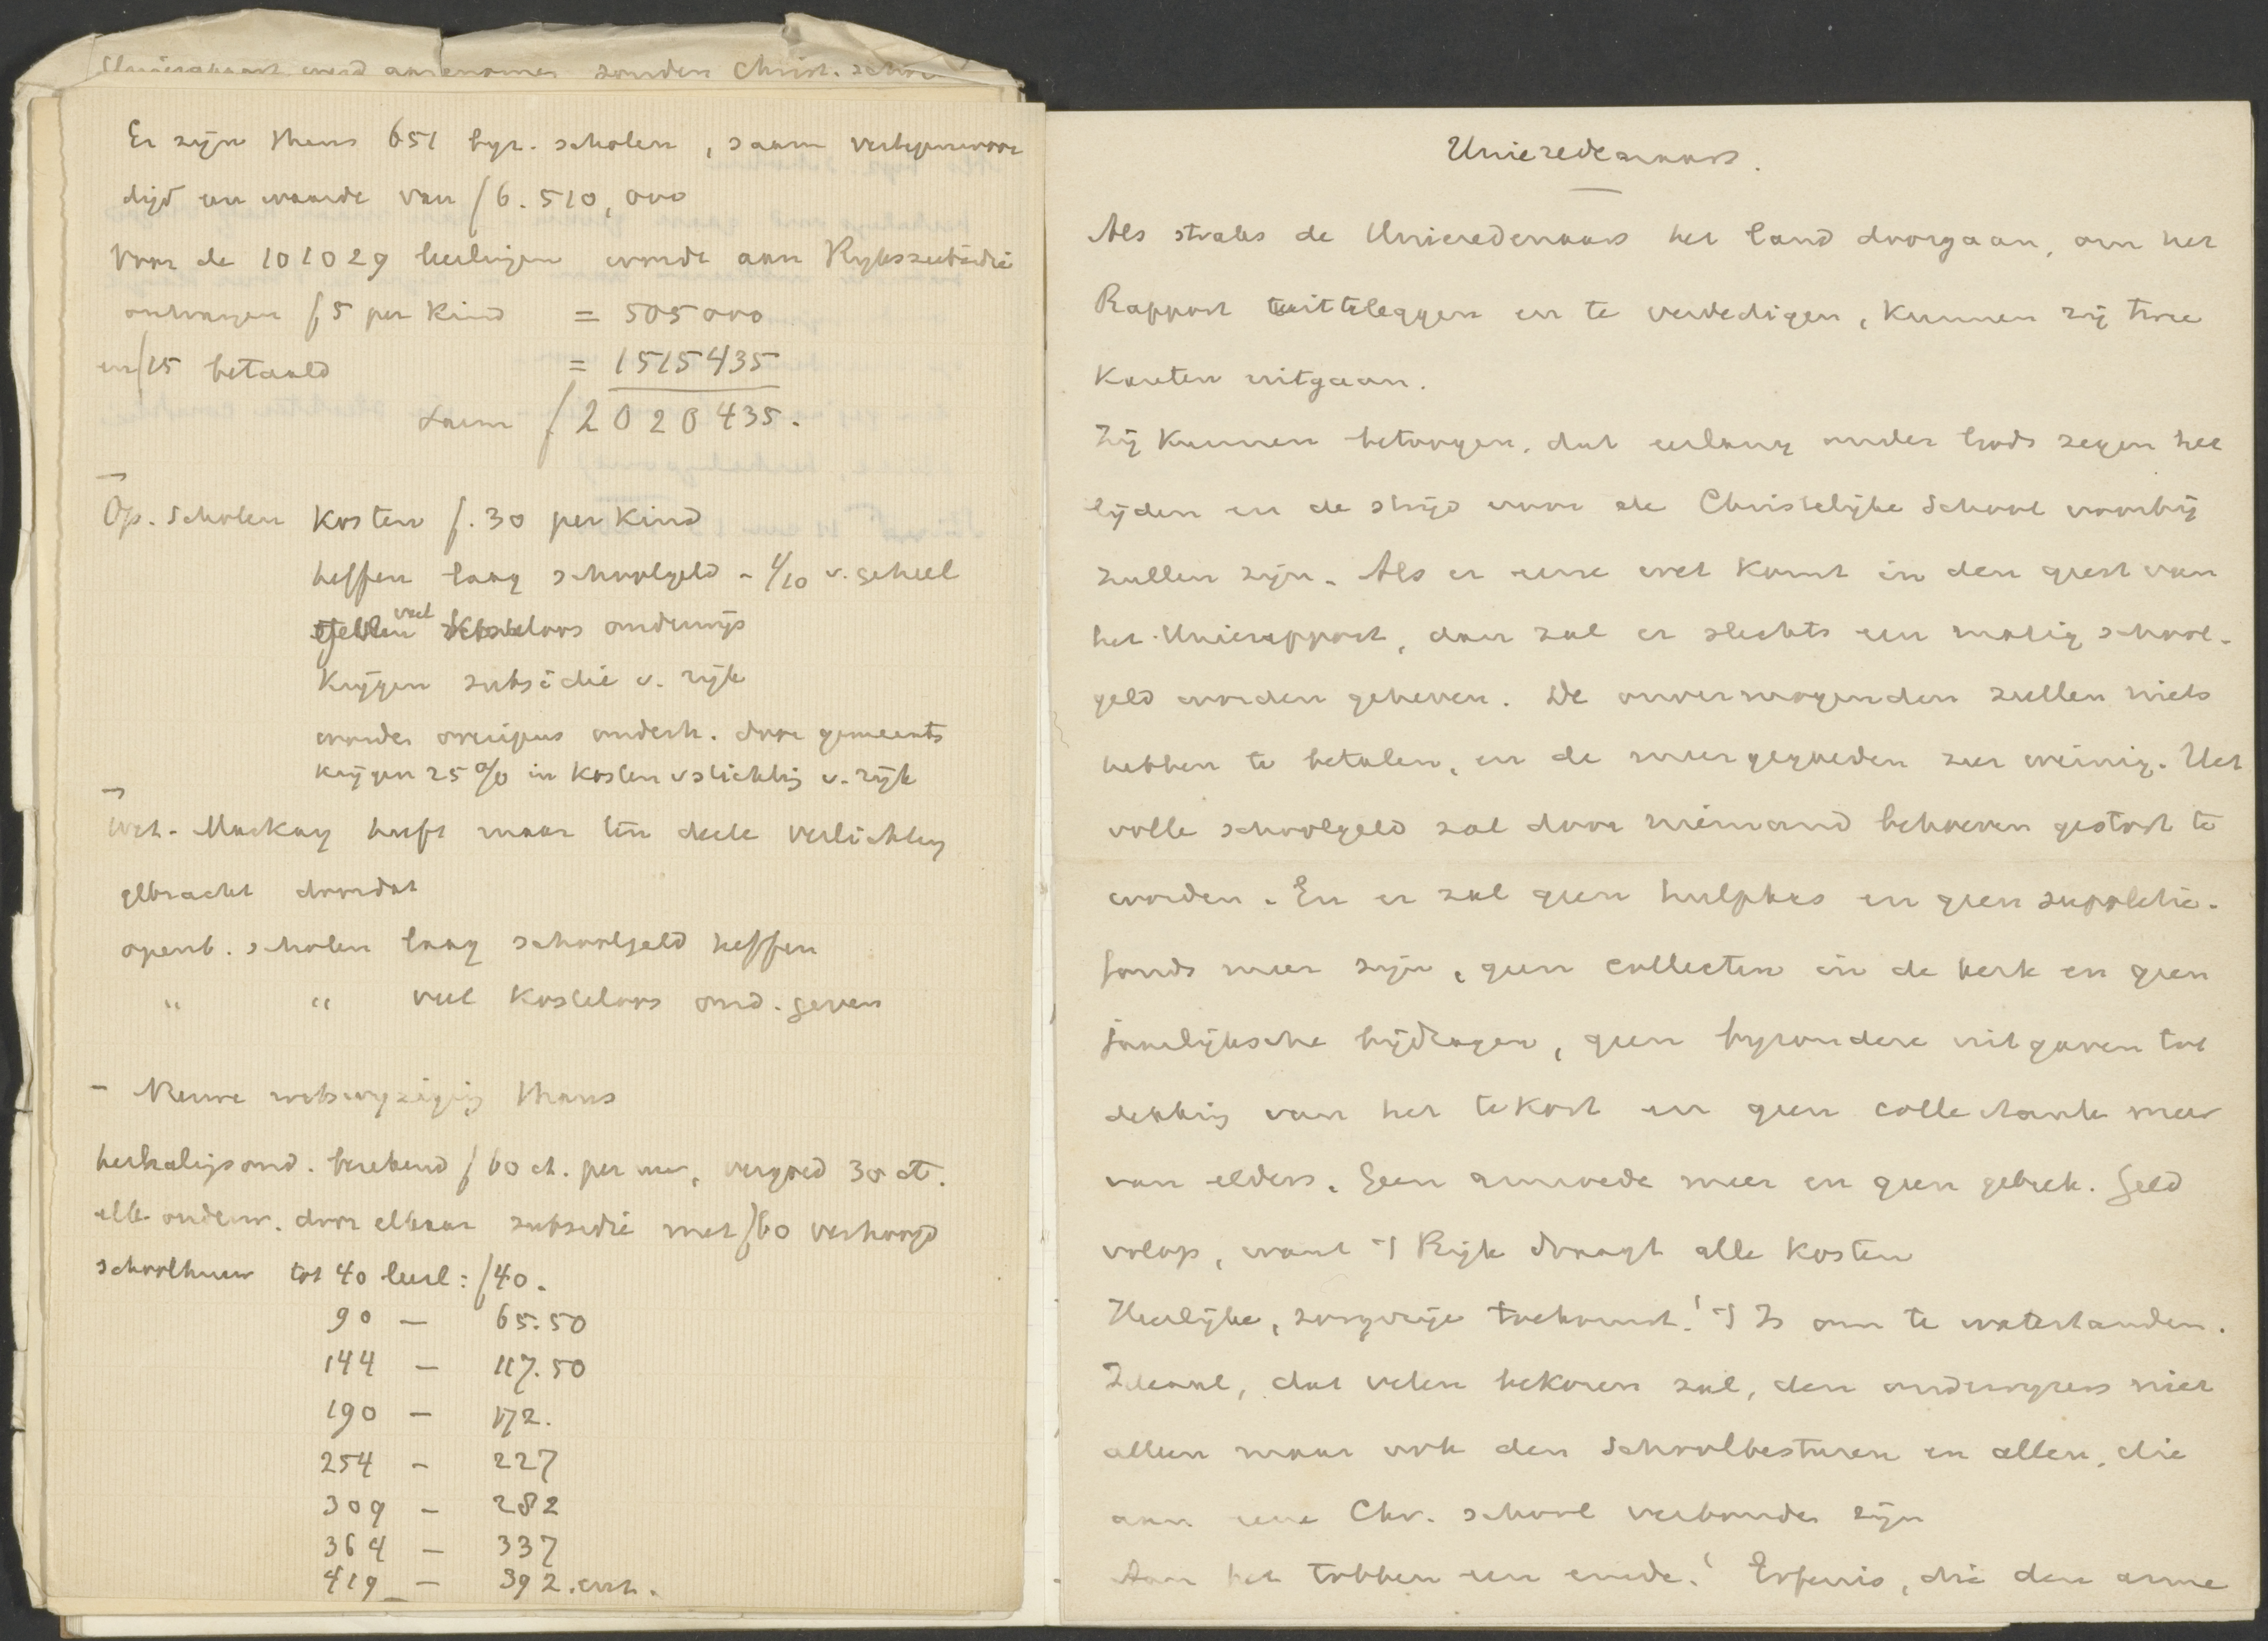 Unierapport werd aangenomen zonder Christ.
Er zijn thans 651 byz. scholen, saam vertegenwoor
digd een waarde van ƒ 6.510,000
Voor de 101029 leerlingen wordt aan Ryks subsidie
ontvangen ƒ 5 per kind = 505000
en ƒ 15 betaald = 1515435
saam ƒ 2020435.
Op. scholen kosten ƒ. 30 per kind
heffen laag schoolgeld - 1/10 v. geheel
geven veel kosteloos onderwijs
Krijgen subsidie v. rijk
worden overigens onderh. door gemeente
krijgen 25% in kosten v stichting v. rijk
Wet-Mackay heeft maar ten deele verlichting
gebracht doordat
openb. scholen laag schoolgeld heffen
" " veel kosteloos ond. geven
- Nieuwe wetswyziging thans
herhalingsond. berekend ƒ 60 ct. per uur, vergoed 30 ct.
elk onderw. door elkaar subsidie met ƒ 60 verhoogd
schoolhuur tot 40 leerl: ƒ 40.
90 — 65.50
144 — 117.50
190 — 172.
254 - 227
309 - 282
364 — 337
419 — 392. enz.
Unieredenaars.
Als straks de Unieredenaars het land doorgaan, om het
Rapport uittleggen en te verdedigen, kunnen zij twee
kanten uitgaan.
Zij kunnen betoogen, dat eerlang onder Gods zegen het
lijden en de strijd voor de Christelijke School voorbij
zullen zijn. Als er eene wet komt in den geest van
het Unierapport, dan zal er slechts een matig school-
geld worden geheven. De onvermogenden zullen niets
hebben te betalen, en de meergegoeden zeer weinig. Het
volle schoolgeld zal door niemand behoeven gestort te
worden. En er zal geen hulpkas en geen suppletie-
fonds meer zijn, geen collecten in de kerk en geen
jaarlijksche bijdragen, geen byzondere uitgaven tot
dekking van het tekort en geen collectante meer
van elders. Geen armoede meer en geen gebrek. Geld
volop, want 't Rijk draagt alle kosten
Heerlijke, zorgvrije toekomst! 't Is om te watertanden.
Ideaal, dat velen bekoren zal, den onderwyzers niet
alleen maar ook den schoolbesturen en allen, die
aan eene Chr. school verbonden zijn
Aan het tobben een einde! Erfenis, die den arme